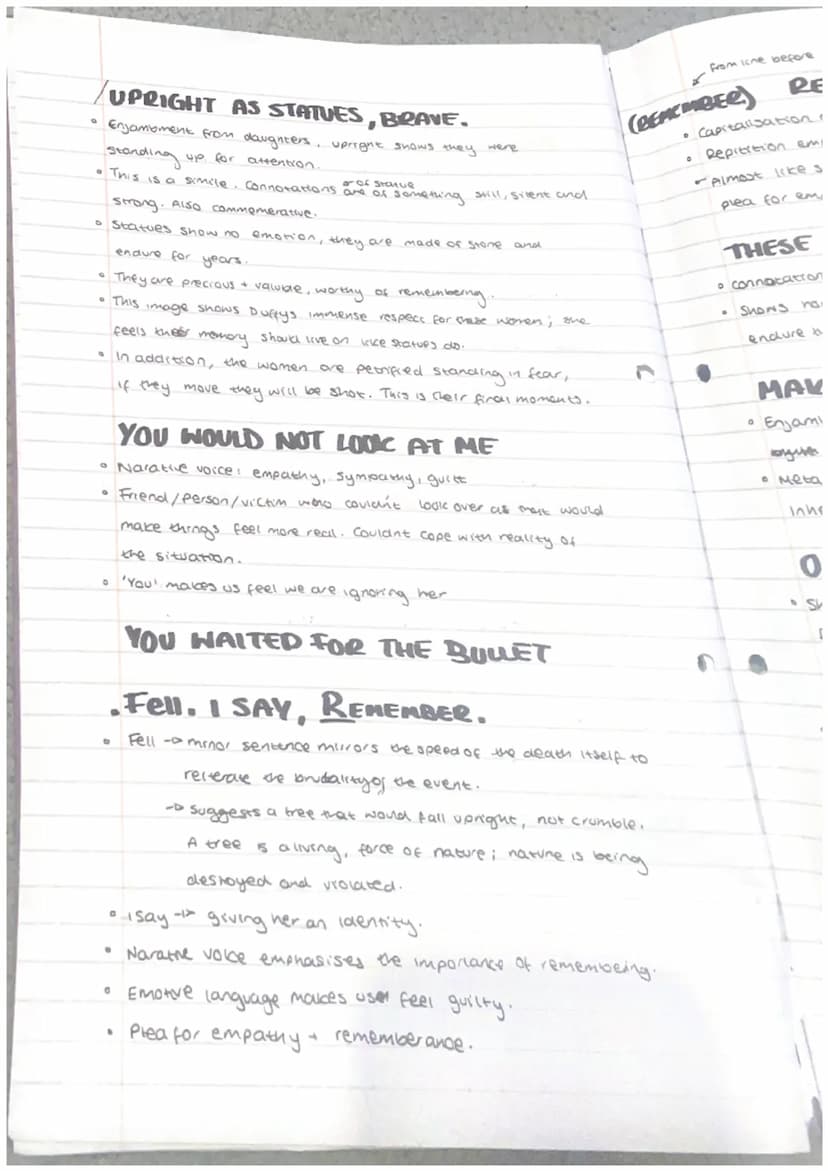 /UPRIGHT AS STATUES, BRAVE.
• Enjambment from daughters. Upright shows they were
standing up for attention.
• This is a simile. Connotations of statue are of something still, silent and
strong. Also commemerative.
• Statues show no emotion, they are made of stone and
endure for years.
• They are precious + valuble, worthy of remembering.
• This image shows Duffys immense respect for these women; she
feels their memory should live on like statues do.
• In addition, the women are petrified standing in fear,
if they move they will be shot. This is their final moments.
YOU WOULD NOT LOOK AT ME
• Narative voice: empathy, sympathy, guilt
• Friend/person/victim who couldn't look over as that would
make things feel more real. Couldnt cope with reality of
the situation.
• 'You' makes us feel we are ignoring her
YOU WAITED FOR THE BULLET
. Fell. I SAY, REMEMBER.
• Fell → minor sentence mirrors the speed of the death itself to
reiterate the brutality of the event.
→ suggests a tree that would fall upright, not crumble.
A tree is a living, force of nature; nature is being
destroyed and violated.
• I say → giving her an identity.
• Narative voice emphasises the importance of remembeing.
• Emotive language makes us feel guilty.
• Plea for empathy + rememberance.
from line before
(REMEMBER) RE
• Capitalisation
• Repitition em
- Almost like s
plea for em
THESE
• connotation
• Shows
endure
MAK
• Enjam
• Meta
Inh
O